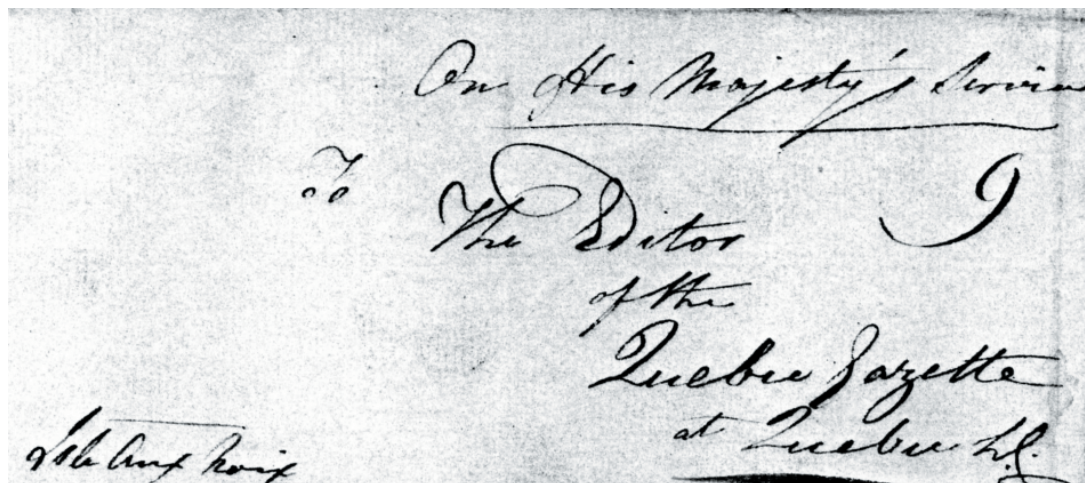 On His Majesty's Service
To
The Editor 9
of the
Quebec Gazette
at Quebec L.C.
Isle Aux Noix